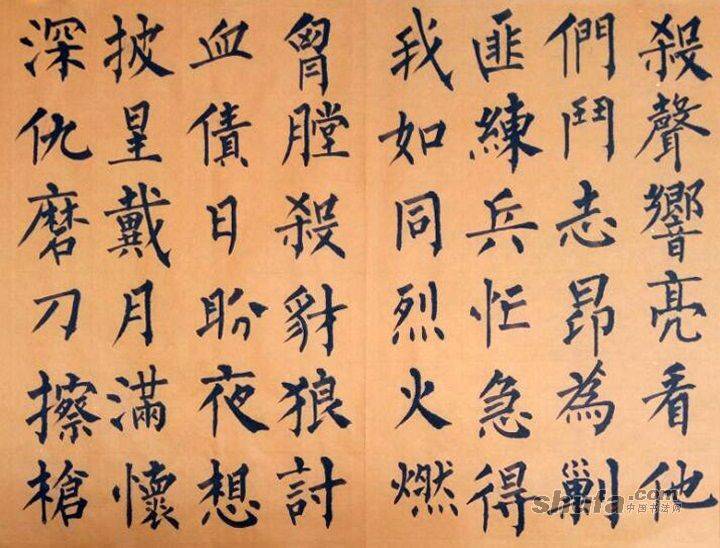 殺聲響亮看他
們鬥志昂為剿
匪練兵忙急得
我如同烈火燃
胷膛殺豺狼討
血債日盼夜想
披星戴月滿懷
深仇磨刀擦槍
shufa.com
中国书法网